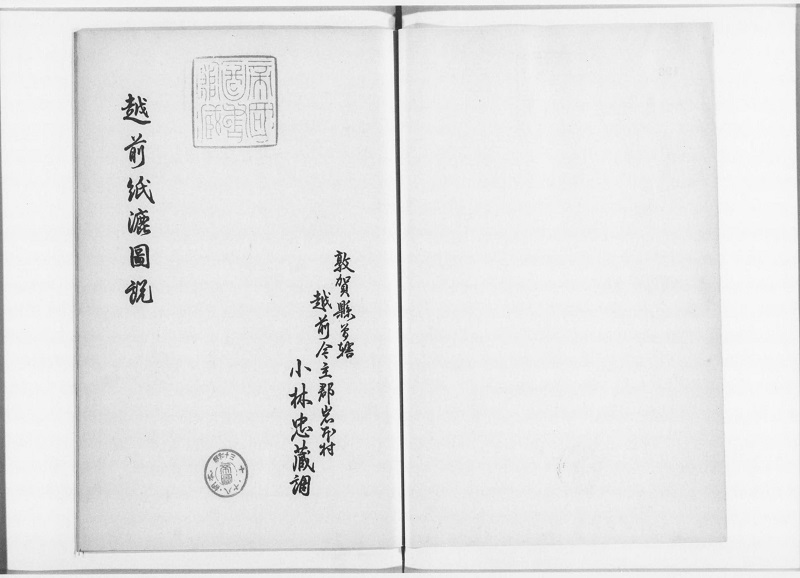 敦賀縣管轄
越前今立郡岩本村
小林忠蔵調
越前紙漉圖説
帝國圖書館藏